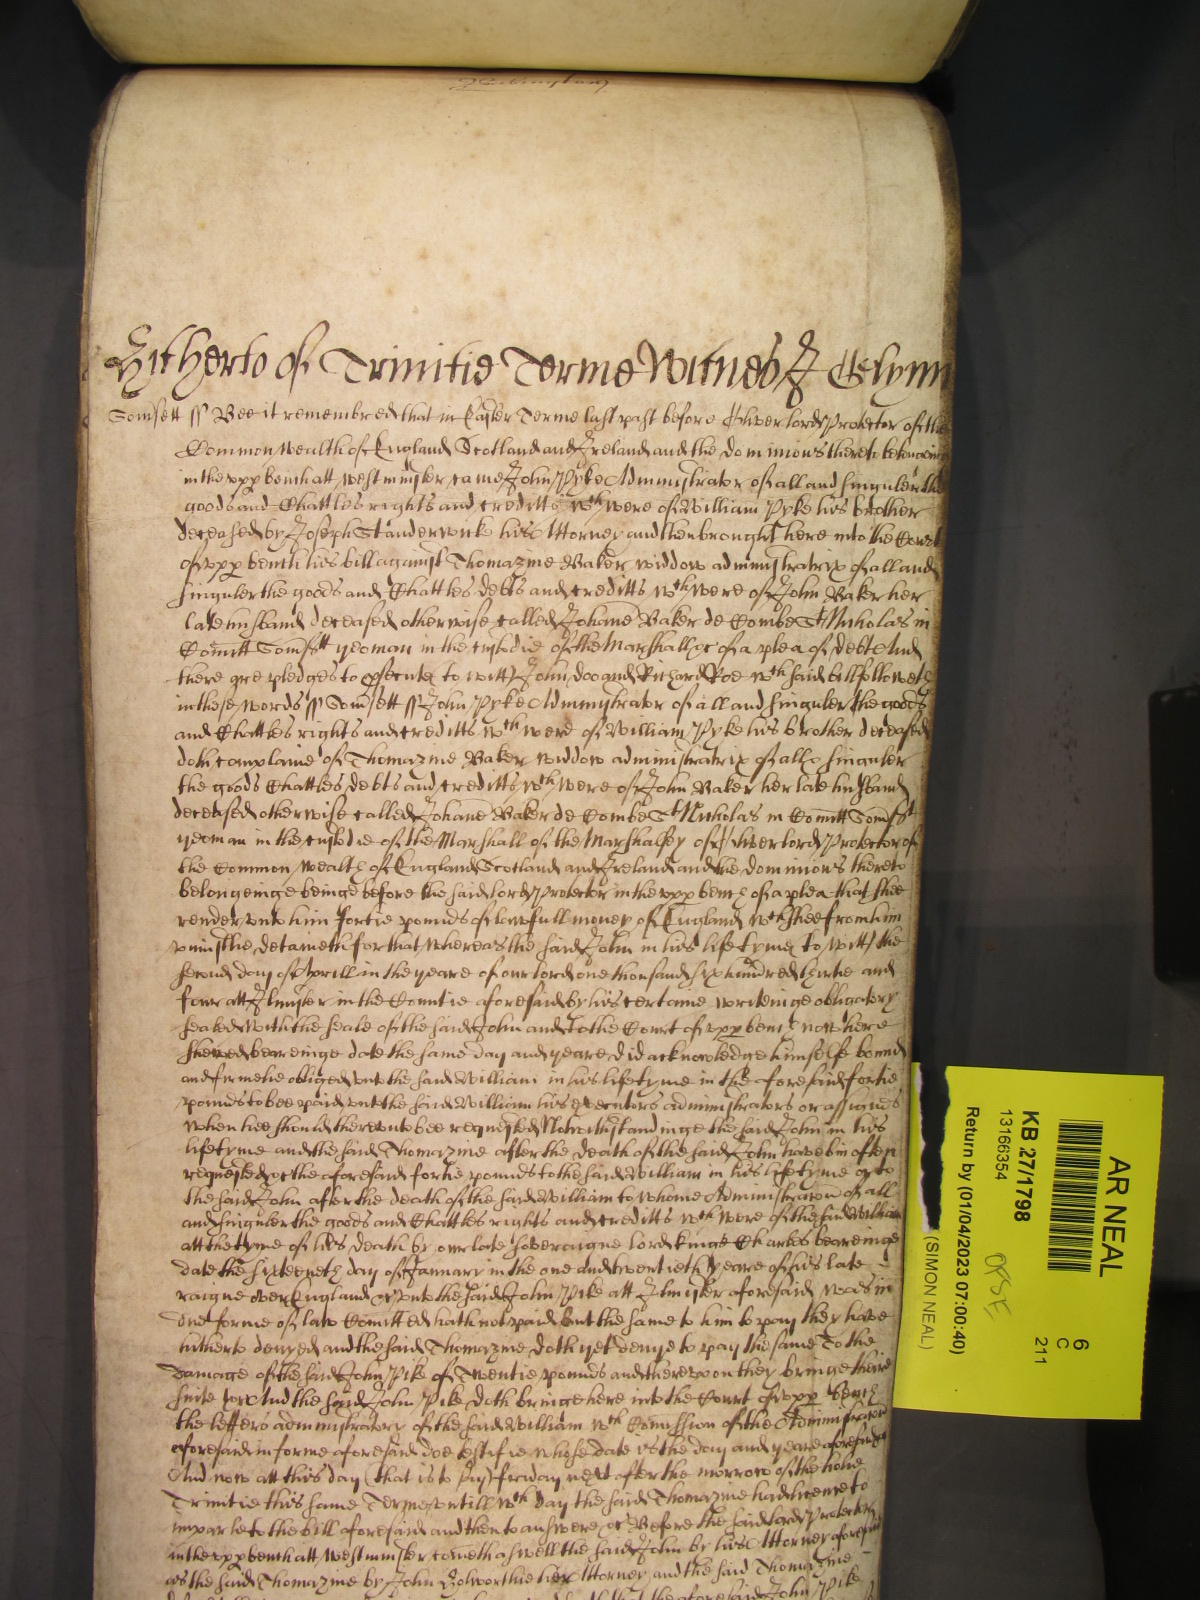 Hitherto of Trinitie Terme Witnes J Glynn
Somsett ss Bee it remembred that in Easter Terme last past before Oliver lord Protector of the
Common wealth of England Scotland and Ireland and the dominions thereto belonging
in the upp bench att Westminster came John Pyke Administrator of all and singuler the
goods and Chattles rights and creditts wch were of William Pyke his brother
deceased by Joseph Standerwicke his Attorney and then brought here into the Court
of upp bench his bill against Thomazine Baker widdow administratrix of all and
singuler the goods and Chattles debts and creditts wch were of John Baker her
late husband deceased otherwise called Johane Baker de Combe St Nicholas in
Comitt Somsett yeoman in the custodie of the Marshall &c of a plea of debt And
there are pledges to psecute to witt John doo and Richard Roe wch said bill followeth
in these words ss Somsett ss John Pyke Administrator of all and singuler the goods
and Chattles rights and creditts wch were of William Pyke his brother deceased
doth complaine of Thomazine Baker widdow administratrix of all & singuler
the goods Chattles debts and creditts wch were of John Baker her late husband
deceased otherwise called Johane Baker de Combe St Nicholas in Comitt Somsett
yeoman in the custodie of the Marshall of the Marshalsey of Oliver lord Protector of
the Common wealth of England Scotland and Ireland and the dominions thereto
belongeinge beinge before the said lord Protector in the upp bench of a plea that shee
render unto him fortie pounds of lawfull money of England wch shee from him
uniustlie detaineth for that whereas the said John in his life tyme to witt the
second day of Aprill in the yeare of our lord one thousand six hundred thirtie and
fowr att Ilmister in the Countie aforesaid by his certaine writeinge obligatory
sealed with the seale of the said John and to the Court of upp bench now here
shewed beareinge date the same day and yeare did acknowledge himselfe bound
and firmelie obliged unto the said William in his lifetyme in the aforesaid fortie
pounds to bee paid unto the said William his executors administrators or assignes
when hee should thereunto bee requested Notwithstandinge the said John in his
lifetyme and the said Thomazine after the death of the said John have bin often
requested &c the aforesaid fortie pounds to the said William in his lifetyme or to
the said John after the death of the said William to whome Administracon of all
and singuler the goods and Chattles rights and creditts wch were of the said William
att the tyme of his death by our late soveraigne lord Kinge Charles beareinge
date the sixteenth day of January in the one and twentieth yeare of his late
raigne over England &c unto the said John Pike att Ilmister aforesaid was in
due forme of law Comitted hath not paid but the same to him to pay they have
hitherto denyed and the said Thomazine doth yet denye to pay the same To the
damage of the said John Pike of twentie pounds and thereupon they bringe theire
suite &c And the said John Pike doth bringe here into the Court of upp bench
the letters administratory of the said William wch Comission of the Administracon
aforesaid in forme aforesaid doe testifie whose date is the day and yeare aforesaid &c
And now att this day (that is to say) friday next after the morrow of the holie
Trinitie this same Terme untill wch day the said Thomazine had licence to
imparle to the bill aforesaid and then to answere &c Before the said lord Protector
in the upp bench att Westminster cometh aswell the said John by his Attorney aforesaid
as the said Thomazine by John Holworthie her Attorney and the said Thomazine
that the aforesaid John Pike
AR NEAL
6
C
211
KB 27/1798
13166354
OFSE
Return by (01/04/2023 07:00:40)
(SIMON NEAL)